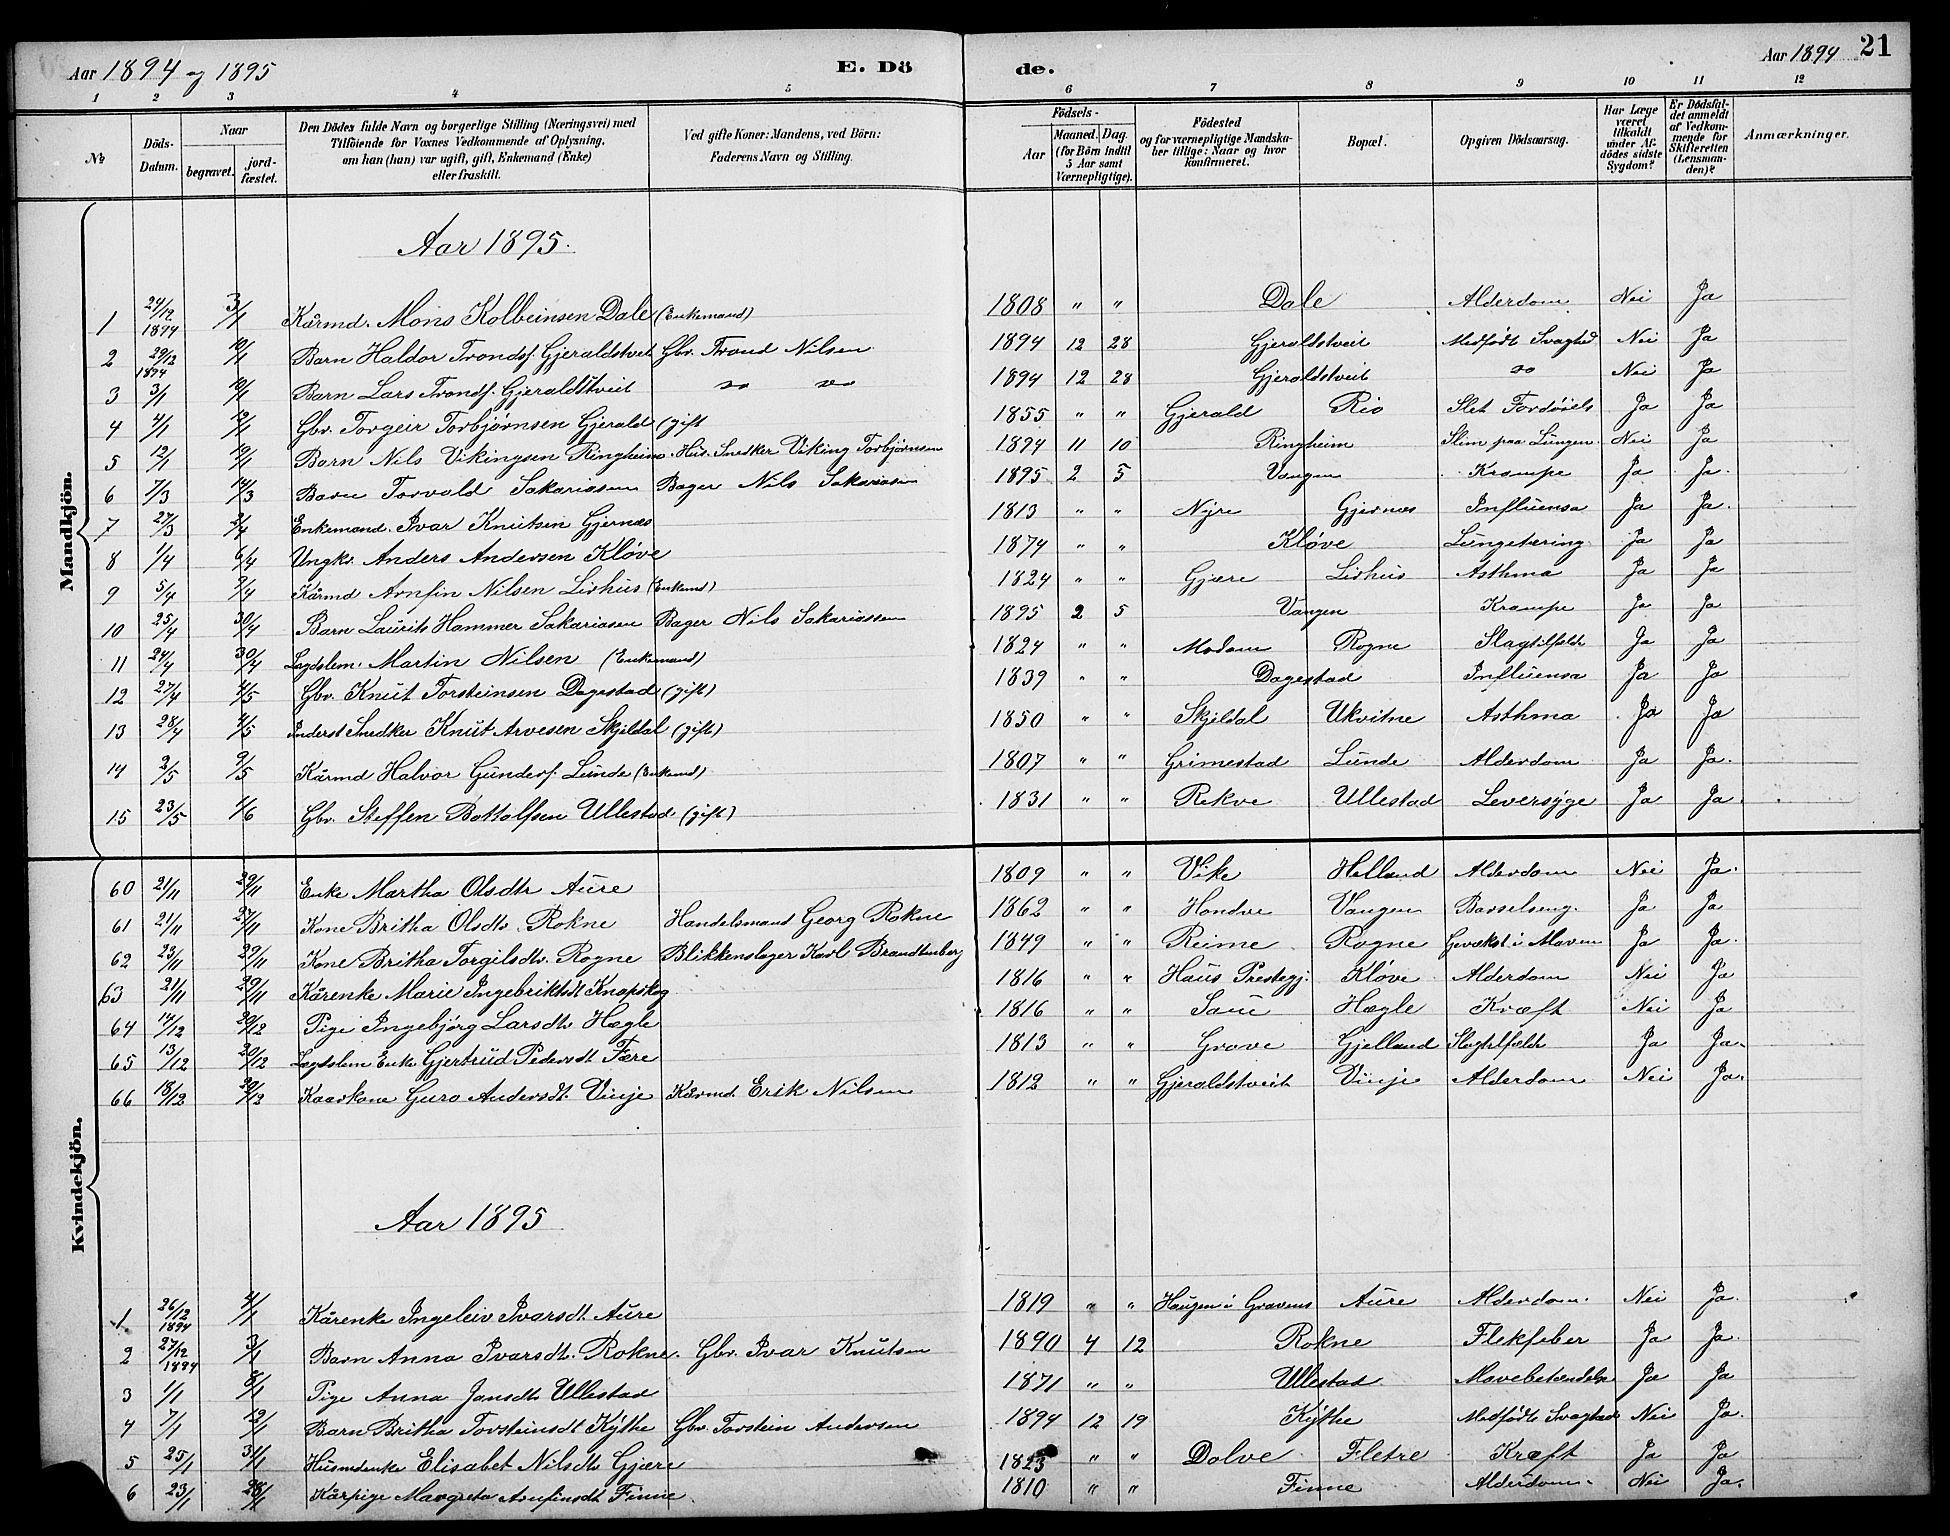 Aar 1894 og 1895 E. Dö de. Aar 1894 21
1 2 3 4 5 6 7 8 9 10 11 12
No Döds-Datum. Naar begravet. jord-fæstet. Den Dödes fulde Navn og borgerlige Stilling (Næringsvei) med Tilföiende for Voxnes Vedkommende af Oplysning, om han (hun) var ugift, gift, Enkemand (Enke) eller fraskilt. Ved gifte Koner: Mandens, ved Börn: Faderens Navn og Stilling. Födsels- Aar Maaned. Dag. (for Börn indtil 5 Aar samt Værnepligtige). Födested og for værnepligtige Mandskaber tillige: Naar og hvor konfirmeret. Bopæl. Opgiven Dödsaarsag. Har Læge været tilkaldt under Afdödes sidste Sygdom? Er Dödsfaldet anmeldt af Vedkommende for Skifteretten (Lensmanden)? Anmærkninger.
Mandkjön.
Aar 1895.
1 24/12 1894 3/1 Kårmd. Mons Kolbeinsen Dale (Enkemand) 1808 " " Dale Alderdom Nei Ja
2 29/12 1894 12/1 Barn Haldor Trondsf. Gjeraldstveit Gbr. Trond Nilsen 1894 12 28 Gjeraldstveit Medfödt Svaghed Nei Ja
3 3/1 12/1 Barn Lars Trondsf. Gjeraldstveit do do 1894 12 28 Gjeraldstveit do Nei Ja
4 4/1 12/1 Gbr. Torgeir Torbjørnsen Gjerald (gift 1855 " " Gjerald Rio Slet Fordøiels Ja Ja
5 12/1 19/1 Barn Nils Vikingsen Ringheim Hus. Snedker Viking Torbjørnsen 1894 11 10 Ringheim Slim paa Lungen Nei Ja
6 7/3 14/3 Barn Torvald Sakariasen Bager Nils Sakariasen 1895 2 5 Vangen Krampe Ja Ja.
7 27/3 2/4 Enkemand. Ivar Knutsen Gjernes 1813 " " Nyre Gjernes Influensa Ja Ja.
8 1/4 6/4 Ungk. Anders Andersen Kløve 1874 " " Kløve Lungetæring Ja Ja
9 5/4 9/4 Kårmd Arnfin Nilsen Lirhus (Enkemd) 1824 " " Gjære Lirhus Asthma Ja Ja
10 25/4 30/4 Barn Laurits Hammer Sakariasen Bager Nils Sakariassen 1895 2 5 Vangen Krampe Ja Ja
11 24/4 30/4 Lægdslem. Martin Nilsen (Enkemand) 1824 " " Modum Rogne Slagtilfeldt Ja Ja
12 27/4 4/5 Gbr. Knut Torsteinsen Dagestad (gift) 1839 " " Dagestad Influensa Ja Ja
13 28/4 4/5 Inderst Snedker Knut Arvesen Skjeldal (gift) 1850 " " Skjeldal Ukvitne Asthma Ja Ja
14 2/5 9/5 Kårmd Halvor Gundersf. Lunde (Enkemd) 1807 " " Grimestad Lunde Alderdom Ja Ja.
15 23/5 4/6 Gbr. Steffen Bottolfsen Ullestad (gift) 1831 " " Rekve Ullestad Leversyge Ja Ja.
Kvindekjön.
60 21/11 29/11 Enke Martha Olsdtr Aure 1809 " " Vike Helland Alderdom Nei Ja.
61 21/11 27/11 Kone Britha Olsdtr. Rokne Handelsmand Georg Rokne 1862 " " Hondve Vangen Barselseng. Ja Ja
62 23/11 29/11 Kone Britha Torgilsdtr. Rogne Blikkenslager Karl Brandtenberg 1849 " " Reime Rogne Gevækst i Maven Ja Ja.
63 21/11 29/11 Kårenke Marie Ingebriktsdt Knapskog 1816 " " Haus Prestegj. Kløve Alderdom Nei Ja
64 14/12 20/12 Pige Ingebjörg Larsdtr Hægle 1816 " " Saue Hægle Kræft Nei Ja
65 13/12 20/12 Lægdslem Enke Gjertrud Pedersdt Fære 1813 " " Grove Gjelland Slagtilfeldt Ja Ja.
66 18/12 29/12 Kaarkone Guro Andersdt. Vinje Kårmd. Erik Nilsen 1812 " " Gjeraldstveit Vinje Alderdom Nei Ja.
Aar 1895
1 26/12 1894 4/1 Kårenke Ingeleiv Ivarsdt Aure 1819 " " Haugen i Gravens Aure Alderdom. Nei Ja.
2 27/12 1894 3/1 Barn Anna Ivarsdt. Rokne. Gbr. Ivar Knutsen 1890 4 12 Rokne Flekfeber Ja Ja.
3 1/1 8/1 Pige Anna Jonsdtr Ullestad 1871 " " Ullestad Mavebetændelse Ja Ja
4 7/1 12/1 Barn Britha Torsteinsdt Kythe Gbr. Torstein Andersen 1894 12 19 Kythe Medfödte Svaghed Nei Ja.
5 25/1 31/1 Husmdenke Elisabet Nilsdtr Gjære 1823 " " Dolve Fletre Kræft Ja Ja
6 23/1 28/1 Kårpige Margreta Arnfinsdt Finne 1810 " " Finne Alderdom. Nei Ja.